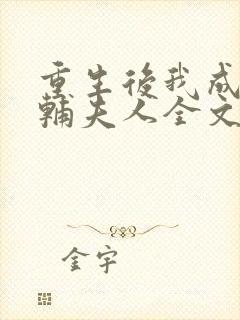 重生後我成
輔夫人全文
金宇